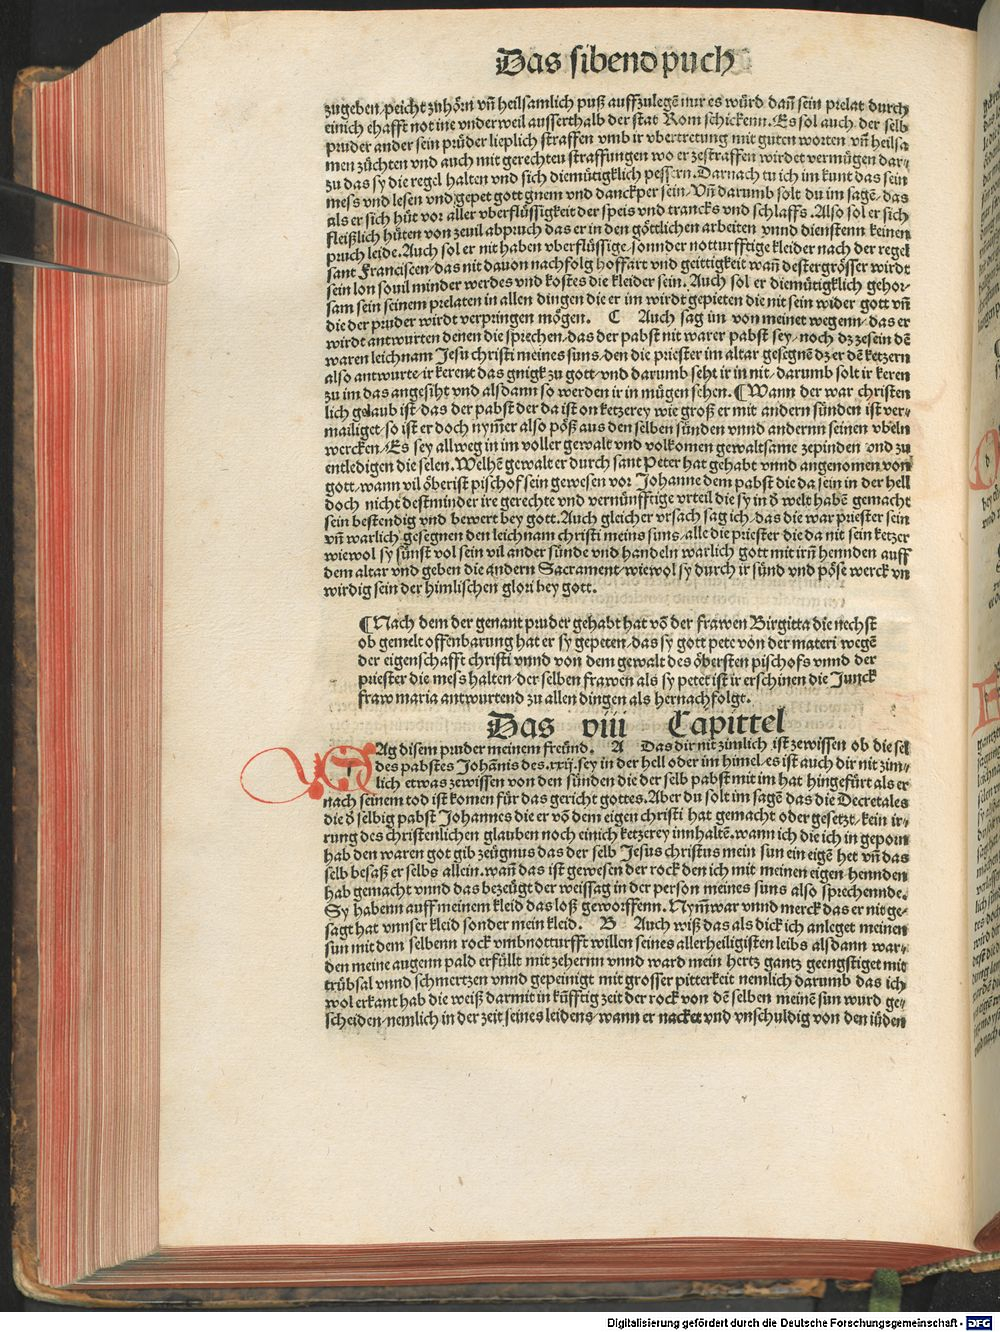 Das sibend puch
zugeben/ peicht zuhörn vn̄ heilsamlich puß auffzulegē nur es würd dan̄ sein prelat durch
einich ehafft not ine vnderweil ausserthalb der stat Rom schickenn. Es sol auch der selb
pruder ander sein prüder lieplich straffen vmb ir vbertretung mit guten worten vn̄ heilsa
men züchten vnd auch mit gerechten straffungen wo er zestraffen wirdet vermügen dar/
zu das sy die regel halten vnd sich diemütigklich pessern. Darnach tu ich im kunt das sein
mess vnd lesen vnd gepet gott gnem vnd danckper sein/ Vn̄ darumb solt du im sagē/ das
als er sich hüt vor aller vberflüssigkeit der speis vnd trancks vnd schlaffs. Also sol er sich
fleißlich hüten von zeuil abpruch das er in den göttlichen arbeiten vnnd dienstenn keinen
pruch leide. Auch sol er nit haben vberflüssige/ sonnder notturfftige kleider nach der regel
sant Franciscen/ das nit dauon nachfolg hoffart vnd geittigkeit wan̄ dester grösser wirdt
sein lon souil minder werdes vnd kostes die kleider sein. Auch sol er diemütigklich gehor/
sam sein seinem prelaten in allen dingen die er im wirdt gepieten die nit sein wider gott vn̄
die der pruder wirdt verpringen mögen. C Auch sag im von meinet wegenn/ das er
wirdt antwurten denen die sprechen/ das der pabst nit warer pabst sey/ noch dz zesein dē
waren leichnam Jesu christi meines suns/ den die priester im altar gesegnē dz er dē ketzern
also antwurte/ ir kerent das gnigk zu gott/ vnd darumb seht ir in nit/ darumb solt ir keren
zu im das angesiht vnd alsdann so werden ir in mügen sehen. ¶ Wann der war christen
lich gelaub ist/ das der pabst der da ist on ketzerey wie groß er mit andern sünden ist ver/
mailiget/ so ist er doch nym̄er also pöß aus den selben sünden vnnd andernn seinen vbeln
wercken/ Es sey allweg in im voller gewalt vnd volkomen gewaltsame zepinden vnd zu
entledigen die selen. Welhē gewalt er durch sant Peter hat gehabt vnnd angenomen von
gott/ wann vil öberist pischof sein gewesen vor Johanne dem pabst die da sein in der hell
doch nicht destminder ire gerechte vnd vernünfftige vrteil die sy in d̄ welt habē gemacht
sein bestendig vnd bewert bey gott. Auch gleicher vrsach sag ich/ das die war priester sein
vn̄ warlich gesegnen den leichnam christi meins suns/ alle die priester die da nit sein ketzer
wiewol sy sünst vol sein vil ander sünde vnd handeln warlich gott mit irn̄ hennden auff
dem altar vnd geben die andern Sacrament/ wiewol sy durch ir sünd vnd pöse werck vn
wirdig sein der himlischen glori bey gott.
¶ Nach dem der genant pruder gehabt hat vō der frawen Birgitta die nechst
ob gemelt offenbarung hat er sy gepeten/ das sy gott pete von der materi wegē
der eigenschafft christi vnnd von dem gewalt des öbersten pischofs vnnd der
priester die mess halten/ der selben frawen als sy petet ist ir erschinen die Junck
fraw maria antwurtend zu allen dingen als hernachfolgt.
Das viii Capittel
SAg disem pruder meinem freünd. A Das dir nit zimlich ist zewissen ob die sel
des pabstes Johānis des. xxij. sey in der hell oder im himel/ es ist auch dir nit zim/
lich etwas zewissen von den sünden die der selb pabst mit im hat hingefürt als er
nach seinem tod ist komen für das gericht gottes. Aber du solt im sagē das die Decretales
die d̄ selbig pabst Johannes die er vō dem eigen christi hat gemacht oder gesetzt/ kein ir/
rung des christenlichen glauben noch einich ketzerey innhaltē. wann ich die ich in geporn
hab den waren got gib zeügnus das der selb Jesus christus mein sun ein eigē het vn̄ das
selb besaß er selbs allein. wan̄ das ist gewesen der rock den ich mit meinen eigen hennden
hab gemacht vnnd das bezeügt der weissag in der person meines suns also sprechennde.
Sy habenn auff meinem kleid das loß geworffenn. Nym̄war vnnd merck das er nit ge/
sagt hat vnnser kleid sonder mein kleid. B Auch wiß das als dick ich anleget meinen
sun mit dem selbenn rock vmb notturfft willen seines allerheiligisten leibs alsdann war/
den meine augenn pald erfüllt mit zehernn vnnd ward mein hertz gantz geengstiget mit
trübsal vnnd schmertzen vnnd gepeinigt mit grosser pitterkeit nemlich darumb das ich
wol erkant hab die weiß darmit in kün̄fftig zeit der rock von dē selben meinē sun wurd ge/
scheiden/ nemlich in der zeit seines leidens/ wann er nacket vnd vnschuldig von den iüden
Digitalisierung gefördert durch die Deutsche Forschungsgemeinschaft - DFG